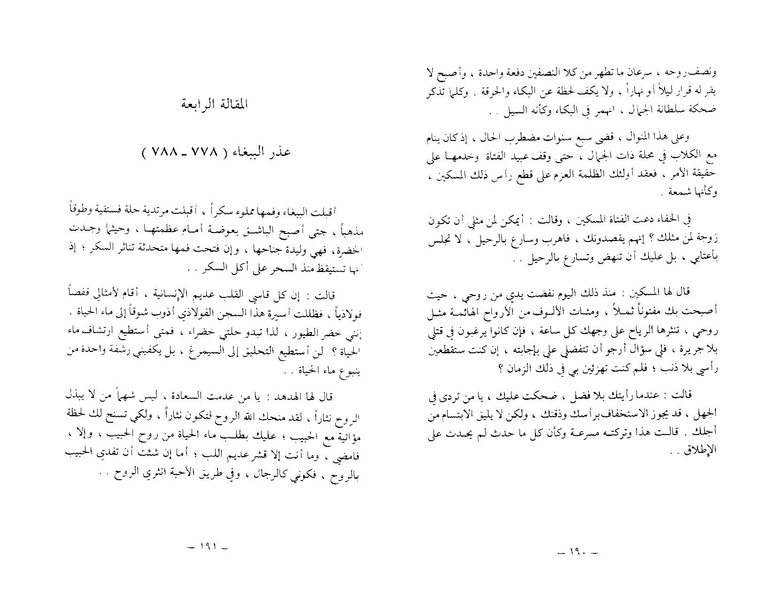 ونصف روحه ، سرعان ما تطهر من كلا النصفين دفعة واحدة ، وأصبح لا
يقر له قرار ليلاً أو نهاراً ، ولا يكف لحظة عن البكاء والحرقة . وكلما تذكر
ضحكة سلطانة الجمال ، انهمر في البكاء وكأنه السيل . .
وعلى هذا المنوال ، قضى سبع سنوات مضطرب الحال ، إذ كان ينام
مع الكلاب في محلة ذات الجمال ، حتى وقف عبيد الفتاة وخدمها على
حقيقة الأمر ، فعقد أولئك الظلمة العزم على قطع رأس ذلك المسكين ،
وكأنها شمعة .
في الخفاء دعت الفتاة المسكين ، وقالت : أيمكن لمن مثلي أن تكون
زوجة لمن مثلك ؟ إنهم يقصدونك ، فاهرب وسارع بالرحيل ، لا تجلس
بأعتابي ، بل عليك أن تنهض وتسارع بالرحيل . .
قال لها المسكين : منذ ذلك اليوم نفضت يدي من روحي ، حيث
أصبحت بك مفتوناً ثملاً ، ومئات الألوف من الأرواح الهائمة مثل
روحي ، تنثرها الرياح على وجهك كل ساعة ، فإن كانوا يرغبون في قتلي
بلا جريرة ، فلي سؤال أرجو أن تتفضلي على بإجابته ، إن كنت ستقطعين
رأسي بلا ذنب ؛ فلم كنت تهزئين بي في ذلك الزمان ؟
قالت : عندما رأيتك بلا فضل ، ضحكت عليك ، يا من تردى في
الجهل ، قد يجوز الاستخفاف برأسك وذقنك ، ولكن لا يليق الابتسام من
أجلك . قالت هذا وتركته مسرعة وكأن كل ما حدث لم يحدث على
الإطلاق . .
– ١٩٠ –
المقالة الرابعة
عذر الببغاء ( ٧٧٨ – ٧٨٨ )
أقبلت الببغاء وفمها مملوء سكراً ، أقبلت مرتدية حلة فستقية وطوقاً
مذهباً ، حتى أصبح الباشق بعوضة أمام عظمتها ، وحيثما وجدت
الخضرة، فهي وليدة جناحها ، وإن فتحت فمها متحدثة تناثر السكر ؛ إذ
أنها تستيقظ منذ السحر على أكل السكر . .
قالت : إن كل قاسي القلب عديم الإنسانية ، أقام لأمثالي قفصاً
فولاذياً ، فظللت أسيرة هذا السجن الفولاذي أذوب شوقاً إلى ماء الحياة .
إنني خضر الطيور ، لذا تبدو حلتي خضراء ، فمتى أستطيع ارتشاف ماء
الحياة ؟ لن أستطيع التحليق إلى السيمرغ ، بل يكفيني رشفة واحدة من
ينبوع ماء الحياة . .
قال لها الهدهد : يا من عدمت السعادة ، ليس شهماً من لا يبذل
الروح نثاراً ، لقد منحك الله الروح لتكون نثاراً ، ولكي تسنح لك لحظة
مؤاتية مع الحبيب ؛ عليك بطلب ماء الحياة من روح الحبيب ، وإلا ،
فامضي ، وما أنت إلا قشر عديم اللب ؛ أما إن شئت أن تفدي الحبيب
بالروح ، فكوني كالرجال ، وفي طريق الأحبة انثري الروح . .
– ١٩١ –